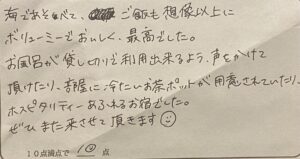 海であそべて、ご飯も想像以上に
ボリューミーでおいしく、最高でした。
お風呂が貸し切りで利用出来るよう、声をかけて
頂けたり、部屋に冷たいお茶ポットが用意されていたり、
ホスピタリティーあふれるお宿でした。
ぜひまた来させて頂きます☺
10点満点で 10 点